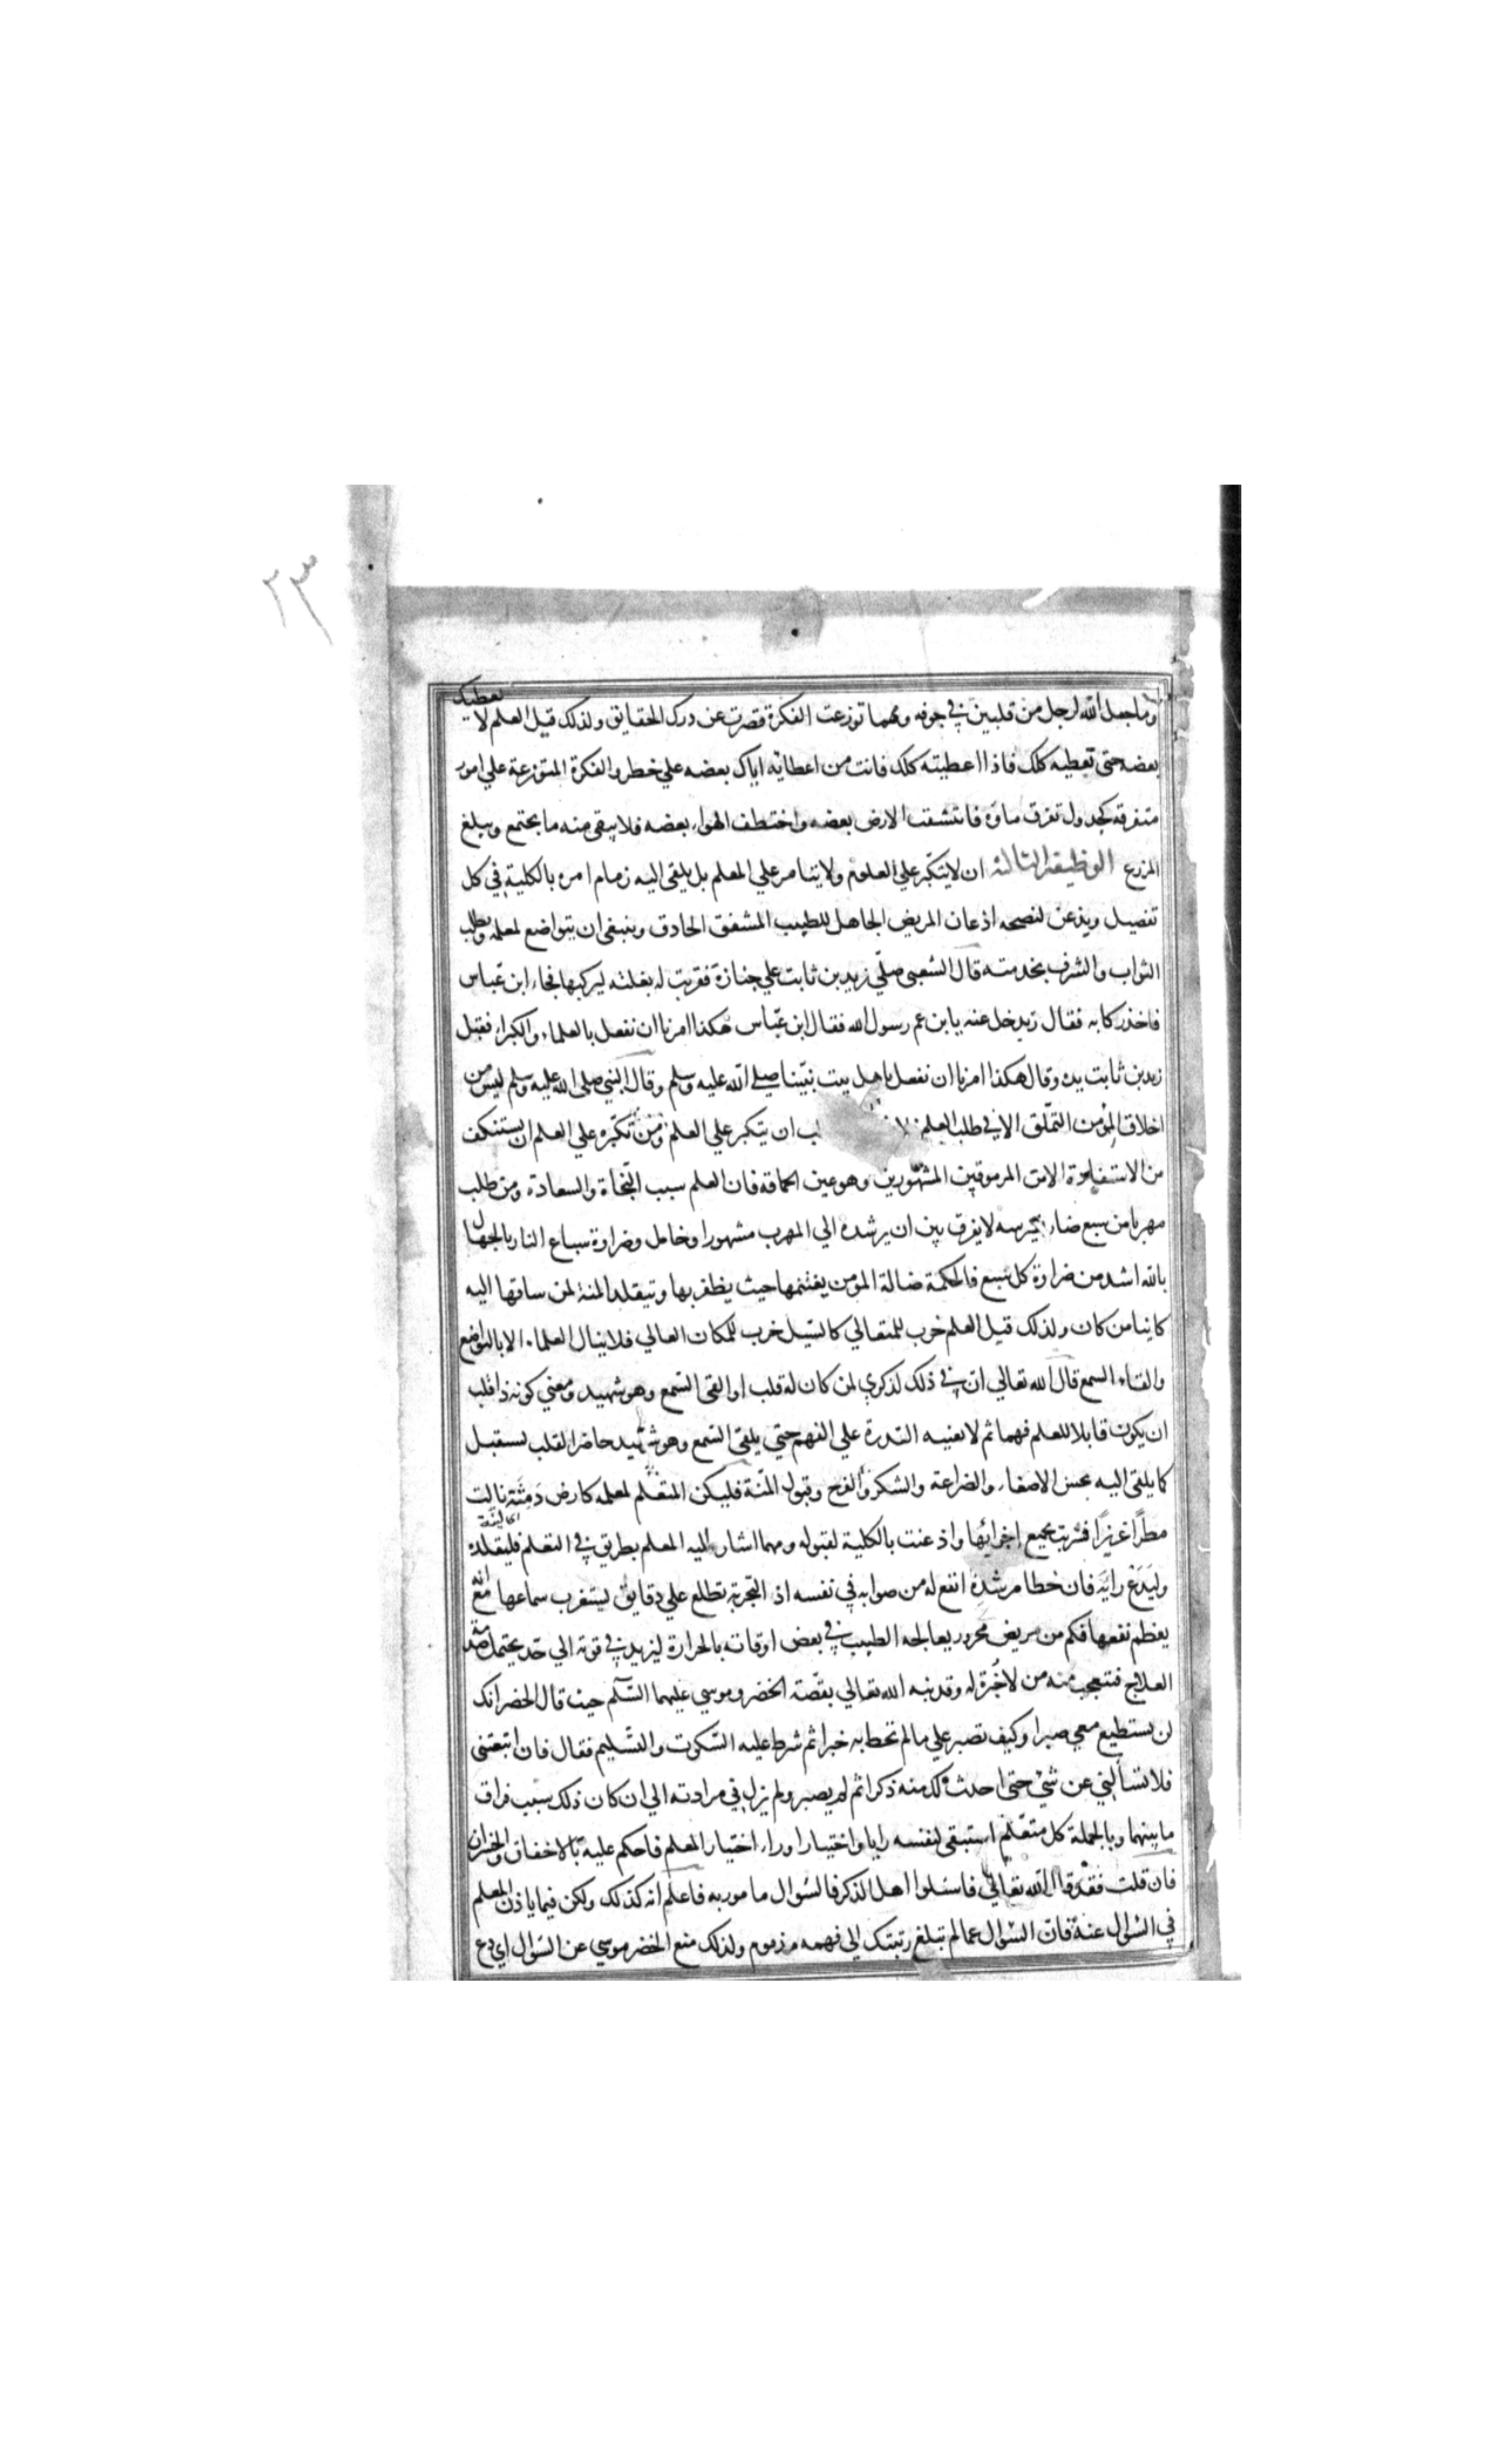 ٢٣
وما جعل الله لرجل من قلبين في جوفه ومهما توزعت الفكرة قصرت عن درك الحقايق ولذلك قيل العلم لا يعطيك
بعضه حتى تعطيه كلك فاذا اعطيته كلك فانت من اعطائه اياك بعضه علي خطر والفكرة المتوزعة علي امور
متفرقة كجدول تفرق ماؤه فانتشفت الارض بعضه واختطف الهواء بعضه فلا يبقي منه ما يجتمع ويبلغ
المزرع الوظيفة الثالثة ان لا يتكبر علي العلوم ولا يتامر علي المعلم بل يلقي اليه زمام امره بالكلية في كل
تفصيل ويذعن لنصحه اذعان المريض الجاهل للطبيب المشفق الحاذق وينبغي ان يتواضع لمعلمه ويطلب
الثواب والشرف بخدمته قال الشعبي صلّي زيد بن ثابت علي جنازة فقربت له بغلته ليركبها فجاء ابن عباس
فاخذ ركابه فقال زيد خل عنه يا بن عم رسول الله فقال ابن عباس هكذا امرنا ان نفعل بالعلماء والكبراء فقبل
زيد بن ثابت يده وقال هكذا امرنا ان نفعل باهل بيت نبينا صلي الله عليه وسلم وقال النبي صلى الله عليه وسلم ليس من
اخلاق المؤمن التملّق الا في طلب العلم فلا ان يتكبر علي العلم ومن تكبّره علي العلم ان يستنكف
من الاستفادة الا من المرموقين المشهورين وهو عين الحماقة فان العلم سبب النجاة والسعادة ومن طلب
مهربا من سبع ضار يفترسه لا يفرق بين ان يرشده الي المهرب مشهور او خامل وضراوة سباع النار بالجهال
بالله اشد من ضراوة كل سبع فالحكمة ضالة المؤمن يغتنمها حيث يظفر بها ويتقلد المنة لمن ساقها اليه
كاينا من كان ولذلك قيل العلم حرب للمتعالي كالسّيل حرب للمكان العالي فلا ينال العلماء الا بالتواضع
والقاء السمع قال الله تعالي ان في ذلك لذكري لمن كان له قلب او القي السّمع وهو شهيد ومعني كونه ذا قلب
ان يكون قابلا للعلم فهما ثم لا تعنيه القدرة علي الفهم حتي يلقي السّمع وهو شهيد حاضر القلب لستقبل
كما يلقي اليه بحسن الاصغاء والضراعة والشكر والفرح وقبول المنّة فليكن المتعلّم لمعلمه كارض دَمِثَة نالت
اي لينة
مطرًا غزيرًا فشربت بجميع اجزائها واذعنت بالكلية لقبوله ومهما اشار اليه المعلم بطريق في التعلم فليقلده
وليَدَعْ رايَه فان خطا مرشده انفع له من صوابه في نفسه اذ التجربة تطلع علي دقايق يستغرب سماعها مع انه
يعظم نفعها فكم من مريض محرور يعالجه الطبيب في بعض اوقاته بالحرارة ليزيد في قوته الي حد يحتمل صدمة
العلاج فتعجب منه من لا خُبرة له وقد نبه الله تعالي بقصّة الخضر وموسي عليهما السّلم حيث قال الخضر انك
لن تستطيع معي صبرا وكيف تصبر علي ما لم تحط به خبرا ثم شرط عليه السّكوت والتّسليم فقال فان اتبعتني
فلا تسألني عن شيء حتى احدث لك منه ذكرا ثم لم يصبر ولم يزل في مرادته الي ان كان ذلك سبب فراق
ما بينهما وبالجملة كل متعلّم استبقي لنفسه رايا واختيارا وراء اختيار المعلم فاحكم عليه بالاخفاق والخسران
فان قلت فقد قال الله تعالي فاسئلوا اهل الذكر فالسّوال مامور به فاعلم انه كذلك ولكن فيما ياذن المعلم
في السّوال عنه فان السّوال عما لم تبلغ رتبتك الي فهمه مذموم ولذلك منع الخضر موسي عن السّوال اي دع